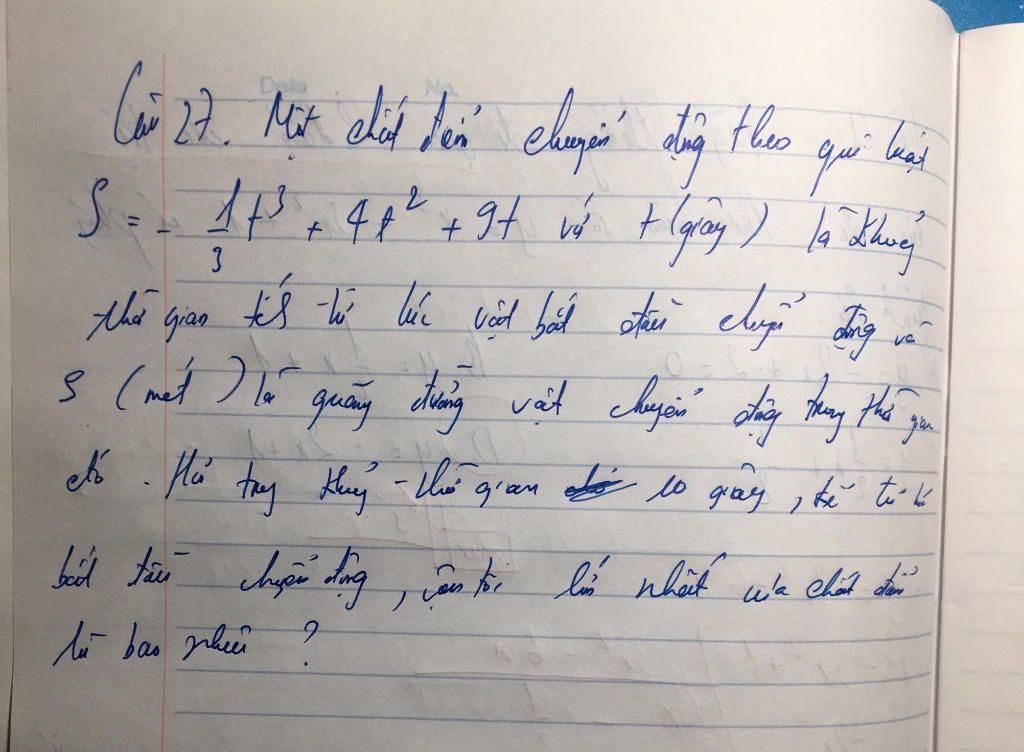 Câu 27. Một chất điểm chuyển động theo qui luật
S = - 1/3 t³ + 4t² + 9t với t (giây) là khoảng
thời gian tính từ lúc vật bắt đầu chuyển động và
S (mét) là quãng đường vật chuyển động trong thời gian
đó. Hỏi trong khoảng thời gian 10 giây, kể từ lúc
bắt đầu chuyển động, vận tốc lớn nhất của chất điểm
là bao nhiêu ?